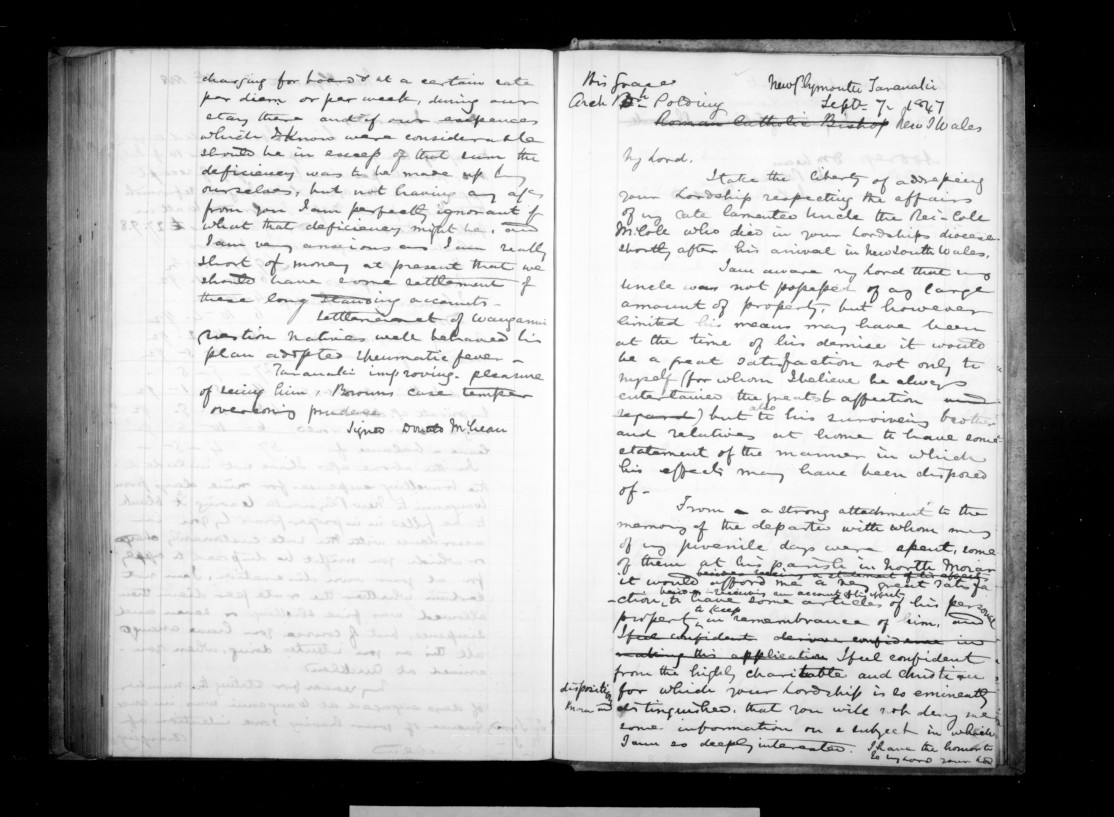 charging for board & at a certain rate
per diem or per week, during our
stay there and if our expences
which I know were considerable
should be in excess of that sum the
deficiency was to be made up by
ourselves, but not having any a/cs
from you I am perfectly ignorant of
what that deficiency might be, and
I am very anxious as I am really
short of money at present that we
should have some settlement of
these long standing accounts -
Settlement of Wanganui
question Natives well behaved his
plan adopted rheumatic fever -
Taranaki improving - pleasure
of seeing him, Browns case temper
overcoming prudence
Signed Donald McLean
His Grace
Arch Bh Polding
Roman Catholic Bishop New S Wales
New Plymouth Taranaki
Sept. 7, 1847
My Lord.
I take the liberty of addressing
your Lordship respecting the affairs
of my late lamented Uncle the Rev. Cole
McCole who died in your Lordships diocese
shortly after his arrival in New South Wales.
I am aware my Lord that my
uncle was not possessed of any large
amount of property, but however
limited his means may have been
at the time of his demise it would
be a great satisfaction not only to
myself (for whom I believe he always
entertained the greatest affection and
regard) but also to his surviving brother
and relatives at home to have some
statement of the manner in which
his effects may have been disposed
of -
From a strong attachment to the
memory of the departed with whom
of my juvenile days were spent, some
of them at his parish in North Morar
besides having a statement of his effects
it would afford me a very great satisfa
besides receiving an account of his effects
-ction, to have some articles of his personal
property, to keep in remembrance of him, and
I feel confident derive confidence in
making this application I feel confident
from the highly charitable and christian
disposition
for which your Lordship is so eminently
known and distinguished, that you will not deny me
some information on a subject in which
I am so deeply interested. I have the honor to
be my Lord your